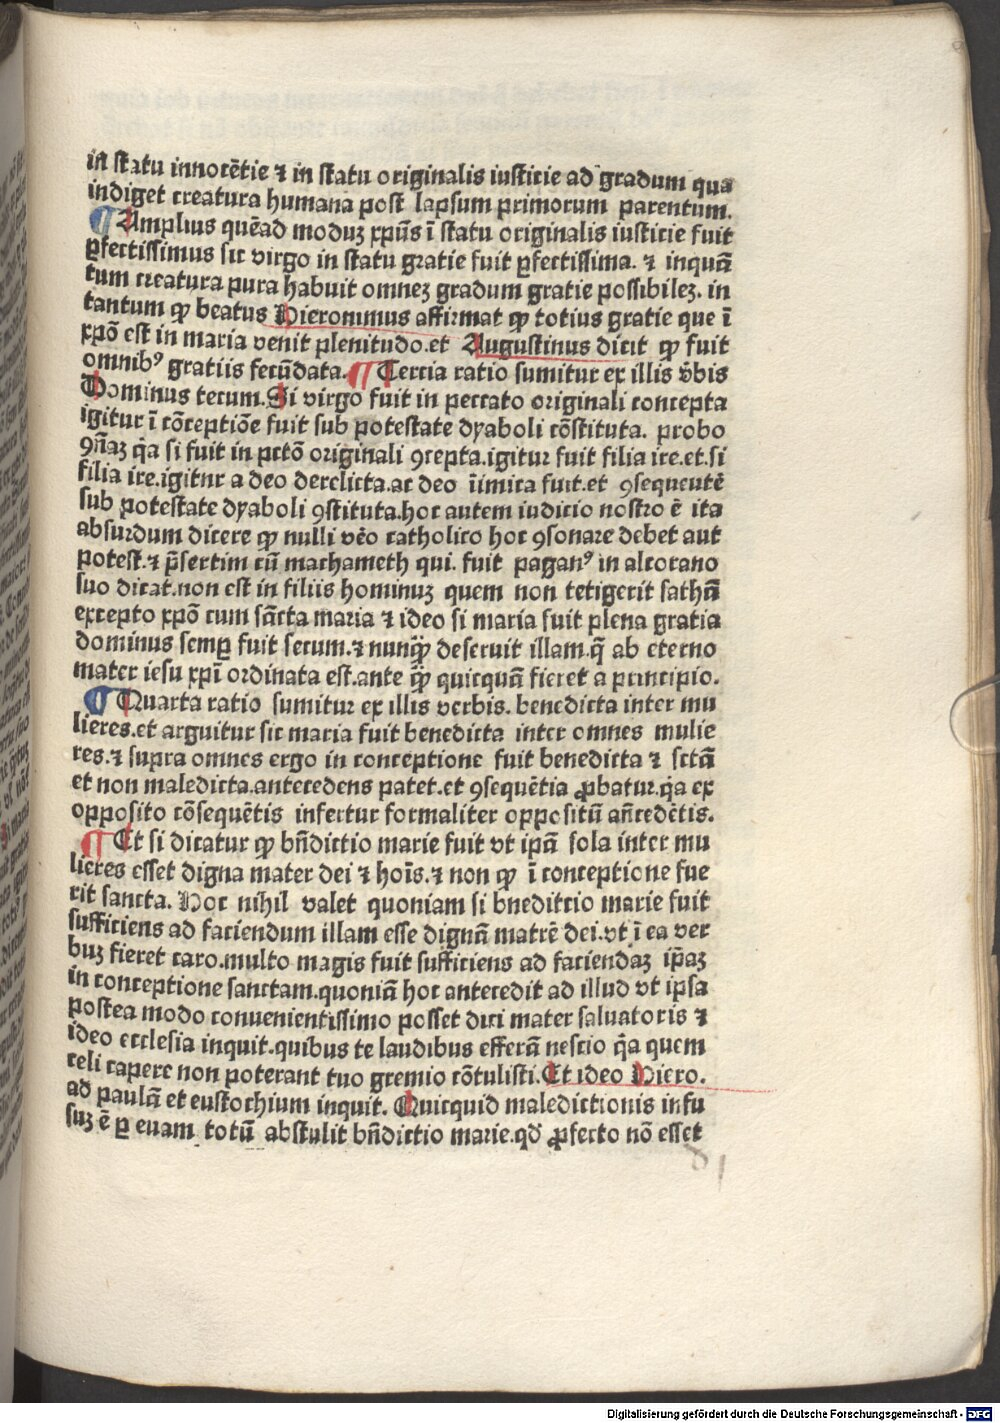 in statu innocētie ⁊ in statu originalis iusticie ad gradum qua
indiget creatura humana post lapsum primorum parentum.
¶ Amplius quēad moduꝫ xpūs ī statu originalis iusticie fuit
ꝑfectissimus sic virgo in statu gratie fuit ꝑfectissima. ⁊ inquā
tum creatura pura habuit omneꝫ gradum gratie possibileꝫ. in
tantum ꝙ beatus Hieronimus affirmat ꝙ totius gratie que ī
xpō est in maria venit plenitudo.et Augustinus dicit ꝙ fuit
omnibꝰ gratiis fecūdata. ¶ Tercia ratio sumitur ex illis v̄bis
Dominus tecum. Si virgo fuit in peccato originali concepta
igitur ī cōceptiōe fuit sub potestate dyaboli cōstituta. probo
ꝯn̄aꝫ q̄a si fuit in pctō originali ꝯcepta.igitur fuit filia ire.et.si
filia ire.igitur a deo derelicta.ac deo īimica fuit.et ꝯsequentē
sub potestate dyaboli ꝯstituta.hoc autem iudicio nostro ē ita
absurdum dicere ꝙ nulli vēo catholico hoc ꝯsonare debet aut
potest.⁊ p̄sertim cū machameth qui. fuit paganꝰ in alcorano
suo dicat.non est in filiis hominuꝫ quem non tetigerit sathā
excepto xpō cum sācta maria ⁊ ideo si maria fuit plena gratia
dominus semꝑ fuit secum.⁊ nunꝙ̄ deseruit illam.q̄ ab eterno
mater iesu xpī ordinata est.ante ꝙ̄ quicquā fieret a principio.
¶ Quarta ratio sumitur ex illis verbis. benedicta inter mu
lieres.et arguitur sic maria fuit benedicta inter omnes mulie
res.⁊ supra omnes ergo in conceptione fuit benedicta ⁊ sctā
et non maledicta.antecedens patet.et ꝯsequētia ꝓbatur.q̄a ex
opposito cōsequētis infertur formaliter oppositū an̄cedētis.
¶ Et si dicatur ꝙ bn̄dictio marie fuit vt ipā sola inter mu
lieres esset digna mater dei ⁊ hoīs.⁊ non ꝙ ī conceptione fue
rit sancta. Hoc nihil valet quoniam si bneditcio marie fuit
sufficiens ad faciendum illam esse dignā matrē dei.vt ī ea ver
buꝫ fieret caro.multo magis fuit sufficiens ad faciendaꝫ ip̄aꝫ
in conceptione sanctam.quoniā hoc antecedit ad illud vt ipsa
postea modo convenientissimo posset dici mater saluatoris ⁊
ideo ecclesia inquit.quibus te laudibus efferā nescio q̄a quem
celi capere non poterant tuo gremio cōtulisti. Et ideo Hiero.
ad paulā et eustochium inquit. Quicquid maledictionis infu
suꝫ ē ꝑ euam totū abstulit bn̄dictio marie.qđ ꝓfecto nō esset
81
Digitalisierung gefördert durch die Deutsche Forschungsgemeinschaft - DFG